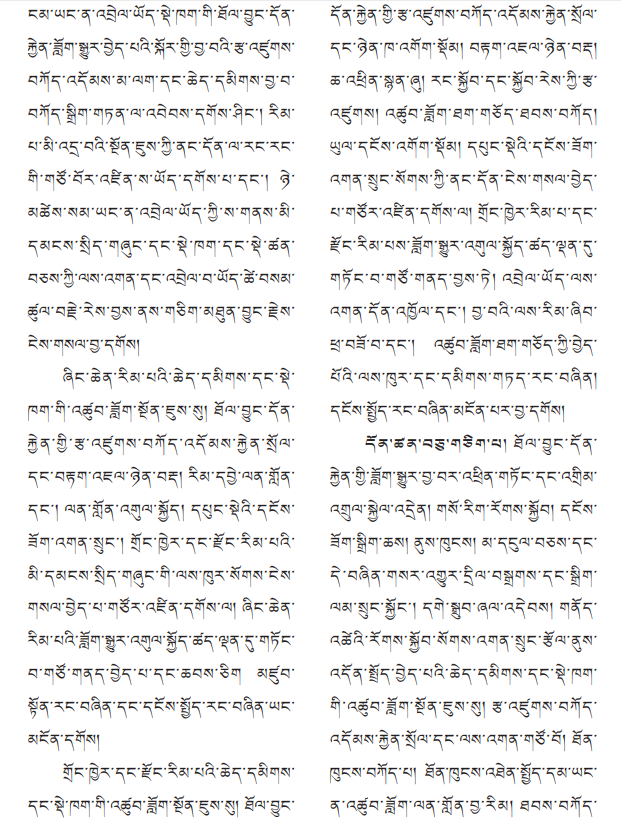 ངམ་ཡང་ན་འབྲེལ་ཡོད་སྡེ་ཁག་གི་ཐོལ་བྱུང་དོན་
རྐྱེན་ཟློག་སྒྱུར་བྱེད་པའི་སྐོར་གྱི་བྱ་བའི་རྩ་འཛུགས་
བཀོད་འདོམས་མ་ལག་དང་ཆེད་དམིགས་བྱ་བ་
བཀོད་སྒྲིག་གཏན་ལ་འབེབས་དགོས་ཤིང་། རིམ་
པ་མི་འདྲ་བའི་སྔོན་ཇུས་ཀྱི་ནང་དོན་ལ་རང་རང་
གི་གཙོ་བོར་འཛིན་ས་ཡོད་དགོས་པ་དང་། ཉེ་
མཚེས་སམ་ཡང་ན་འབྲེལ་ཡོད་ཀྱི་ས་གནས་མི་
དམངས་སྲིད་གཞུང་དང་སྡེ་ཁག་དང་སྡེ་ཚན་
བཅས་ཀྱི་ལས་འགན་དང་འབྲེལ་བ་ཡོད་ཚེ་བསམ་
ཚུལ་བརྗེ་རེས་བྱས་ནས་གཅིག་མཐུན་བྱུང་རྗེས་
ངེས་གསལ་བྱ་དགོས།
ཞིང་ཆེན་རིམ་པའི་ཆེད་དམིགས་དང་སྡེ་
ཁག་གི་འཚུབ་ཟློག་སྔོན་ཇུས་སུ། ཐོལ་བྱུང་དོན་
རྐྱེན་གྱི་རྩ་འཛུགས་བཀོད་འདོམས་རྐྱེན་སྲོལ་
དང་བརྟག་འཇལ་ཉེན་བརྡ། རིམ་དབྱེ་ལན་གློན་
དང་། ལན་གློན་འགུལ་སྐྱོད། དཔུང་སྡེའི་དངོས་
ཟོག་འགན་སྲུང་། གྲོང་ཁྱེར་དང་རྫོང་རིམ་པའི་
མི་དམངས་སྲིད་གཞུང་གི་ལས་ཁུར་སོགས་ངེས་
གསལ་བྱེད་པ་གཙོར་འཛིན་དགོས་ལ། ཞིང་ཆེན་
རིམ་པའི་ཟློག་སྒྱུར་འགུལ་སྐྱོད་ཚད་ལྡན་དུ་གཏོང་
བ་གཙོ་གནད་བྱེད་པ་དང་ཆབས་ཅིག མཛུབ་
སྟོན་རང་བཞིན་དང་དངོས་སྤྱོད་རང་བཞིན་ཡང་
མངོན་དགོས།
གྲོང་ཁྱེར་དང་རྫོང་རིམ་པའི་ཆེད་དམིགས་
དང་སྡེ་ཁག་གི་འཚུབ་ཟློག་སྔོན་ཇུས་སུ། ཐོལ་བྱུང་
དོན་རྐྱེན་གྱི་རྩ་འཛུགས་བཀོད་འདོམས་རྐྱེན་སྲོལ་
དང་ཉེན་ཁ་འགོག་སྡོམ། བརྟག་འཇལ་ཉེན་བརྡ།
ཆ་འཕྲིན་སྙན་ཞུ། རང་སྐྱོབ་དང་སྐྱོབ་རེས་ཀྱི་རྩ་
འཛུགས། འཚུབ་ཟློག་ཐག་གཅོད་ཐབས་བཀོད།
ཡུལ་དངོས་འགོག་སྡོམ། དཔུང་སྡེའི་དངོས་ཟོག་
འགན་སྲུང་སོགས་ཀྱི་ནང་དོན་ངེས་གསལ་བྱེད་
པ་གཙོར་འཛིན་དགོས་ལ། གྲོང་ཁྱེར་རིམ་པ་དང་
རྫོང་རིམ་པས་ཟློག་སྒྱུར་འགུལ་སྐྱོད་ཚད་ལྡན་དུ་
གཏོང་བ་གཙོ་གནད་བྱས་ཏེ། འབྲེལ་ཡོད་ལས་
འགན་དོན་འཁྱོལ་དང་། བྱ་བའི་ལས་རིམ་ཞིབ་
ཕྲ་བཟོ་བ་དང་། འཚུབ་ཟློག་ཐག་གཅོད་ཀྱི་བྱེད་
པོའི་ལས་ཁུར་དང་དམིགས་གཏད་རང་བཞིན།
དངོས་སྤྱོད་རང་བཞིན་མངོན་པར་བྱ་དགོས།
དོན་ཚན་བཅུ་གཅིག་པ། ཐོལ་བྱུང་དོན་
རྐྱེན་གྱི་ཟློག་སྒྱུར་བྱ་བར་འཕྲིན་གཏོང་དང་འགྲིམ་
འགྲུལ་སྐྱེལ་འདྲེན། གསོ་རིག་རོགས་སྐྱོབ། དངོས་
ཟོག་སྒྲིག་ཆས། ནུས་ཁུངས། མ་དངུལ་བཅས་དང་
དེ་བཞིན་གསར་འགྱུར་དྲིལ་བསྒྲགས་དང་སྒྲིག་
ལམ་སྲུང་སྐྱོང་། དགེ་སྒྲུབ་ཞལ་འདེབས། གནོད་
འཚེའི་རོགས་སྐྱོབ་སོགས་འགན་སྲུང་རྩོལ་ནུས་
འདོན་སྤྲོད་བྱེད་པའི་ཆེད་དམིགས་དང་སྡེ་ཁག་
གི་འཚུབ་ཟློག་སྔོན་ཇུས་སུ། རྩ་འཛུགས་བཀོད་
འདོམས་རྐྱེན་སྲོལ་དང་ལས་འགན་གཙོ་བོ། ཐོན་
ཁུངས་བཀོད་པ། ཐོན་ཁུངས་འཐེན་སྤྱོད་དམ་ཡང་
ན་འཚུབ་ཟློག་ལན་གློན་བྱ་རིམ། ཐབས་བཀོད་